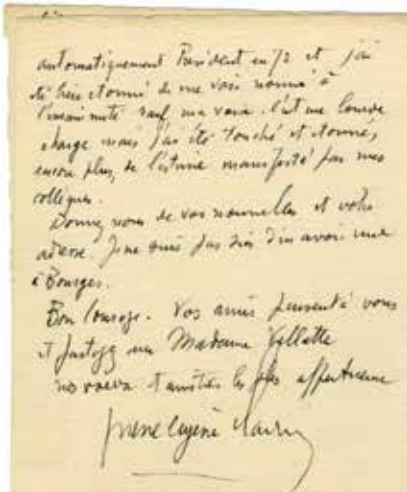 automatiquement Président en 72 et j'ai
été bien étonné de me voir nommé à
l'unanimité sauf ma voix. C'est une lourde
charge mais j'ai été touché et étonné,
encore plus, de l'estime manifesté par mes
collègues.
Donnez nous de vos nouvelles et votre
adresse. Je ne suis pas sûr d'en avoir une
à Bourges.
Bon courage. Vos amis pensent à vous
et partagez avec Madame
nos voeux d'amitiés les plus affectueuse
Pierre Eugène